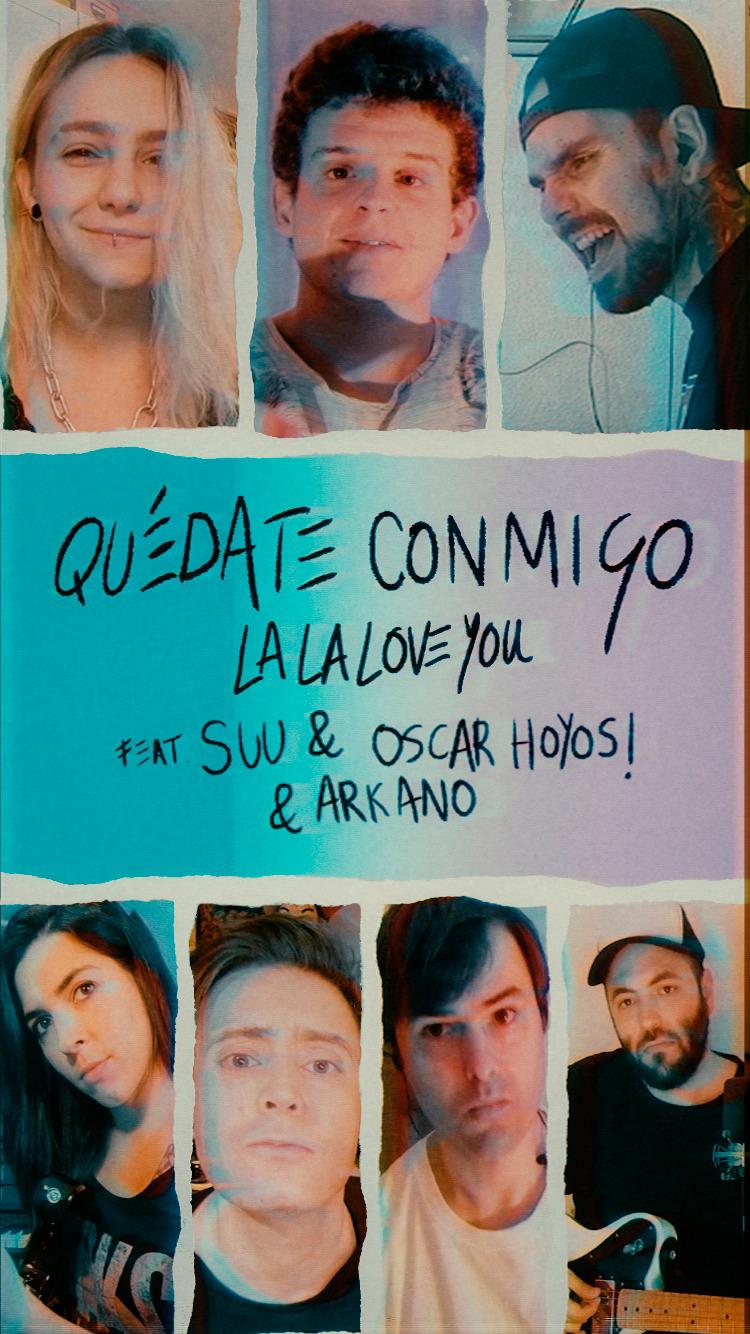 QUÉDATE CONMIGO
LA LA LOVE YOU
FEAT. SUU & OSCAR HOYOS!
& ARKANO